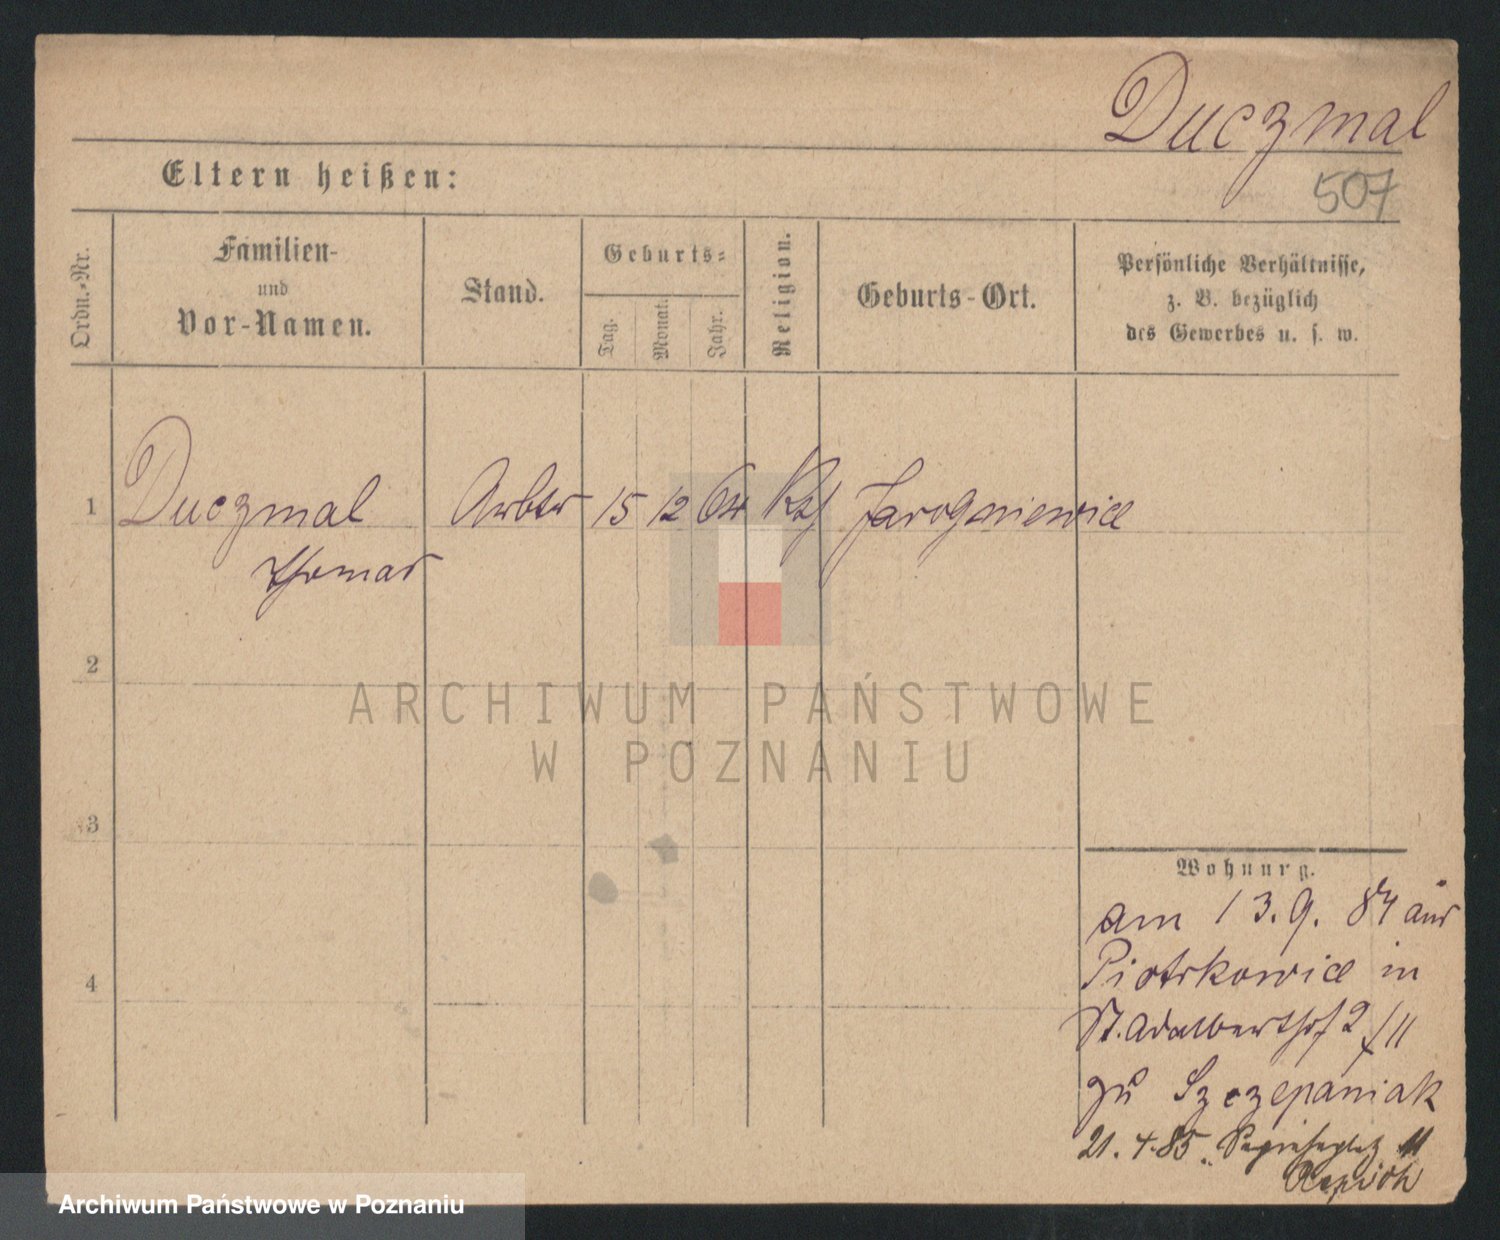 Duczmal
507
Eltern heißen:
Ordn.-Nr.
Familien-
und
Vor-Namen.
Stand.
Geburts-
Tag.
Monat.
Jahr.
Religion.
Geburts-Ort.
Persönliche Verhältnisse,
z. B. bezüglich
des Gewerbes u. s. w.
1 Duczmal Arbtr 15 12 64 Kth Jarogniewice
Thomas
2
ARCHIWUM PAŃSTWOWE
W POZNANIU
3
Wohnung.
am 13. 9. 84 aus
4
Piotrkowice in
St. Adalberthof 2/11
zu Szczepaniak
21. 4. 85. 11
Archiwum Państwowe w Poznaniu